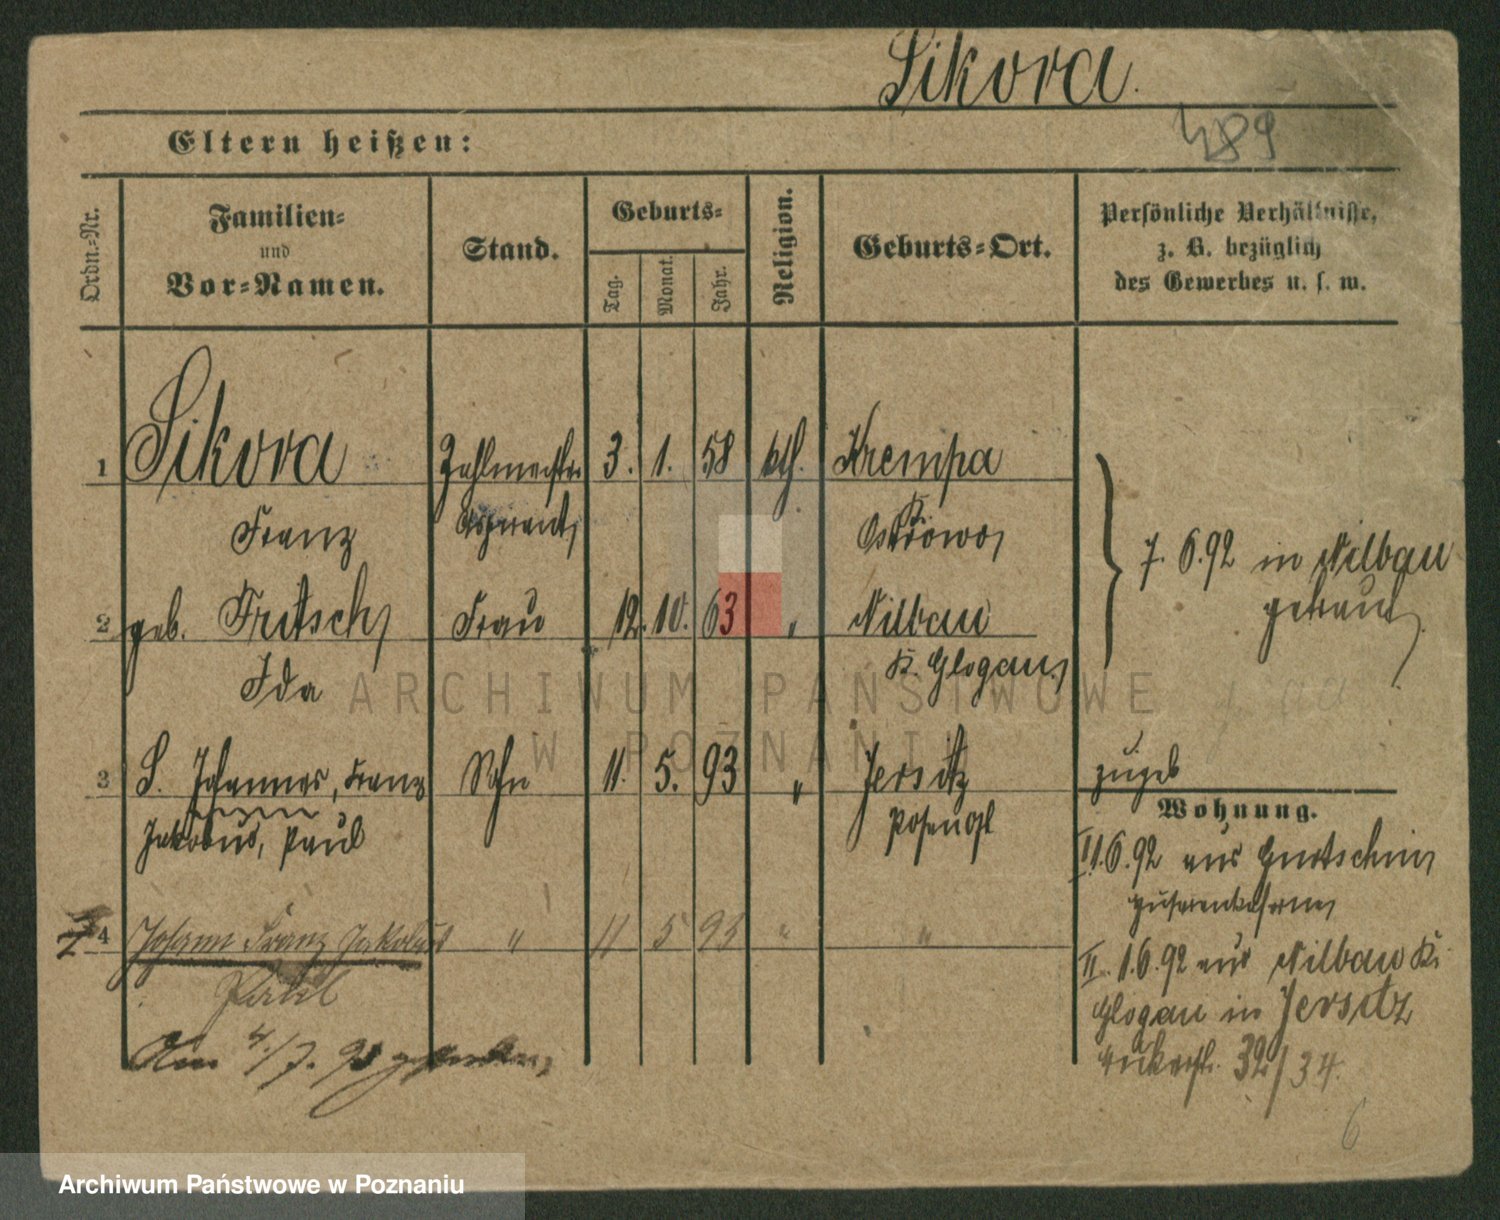 Sikora.
489
Eltern heißen:
Ordn.-Nr.
Familien-
und
Vor-Namen.
Stand.
Geburts-
Tag.
Monat.
Jahr.
Religion.
Geburts-Ort.
Persönliche Verhältnisse,
z. B. bezüglich
des Gewerbes u. s. w.
1 Sikora Zahlmeister 3. 1. 58 kth. Krempa
Franz Aspirant Ostrowo
7. 6. 92 in Nilbau
getraut
2 geb. Fritsch Frau 12. 10. 63 " Nilbau
Ida K. Glogau
3 S. Johannes, Franz Sohn 11. 5. 93 " Jersitz
Jakobus, Paul
zugeb
Wohnung.
I 1.6.92 aus Gurtschin
Husarenkaserne
4 Johann Franz Jakobus " 11 5 93 " "
Paul
II. 1.6.92 aus Nilbau K.
Glogau in Jersitz
32/34.
Am 4./7. 93 gestorben
6
ARCHIWUM PAŃSTWOWE
W POZNANIU
Archiwum Państwowe w Poznaniu